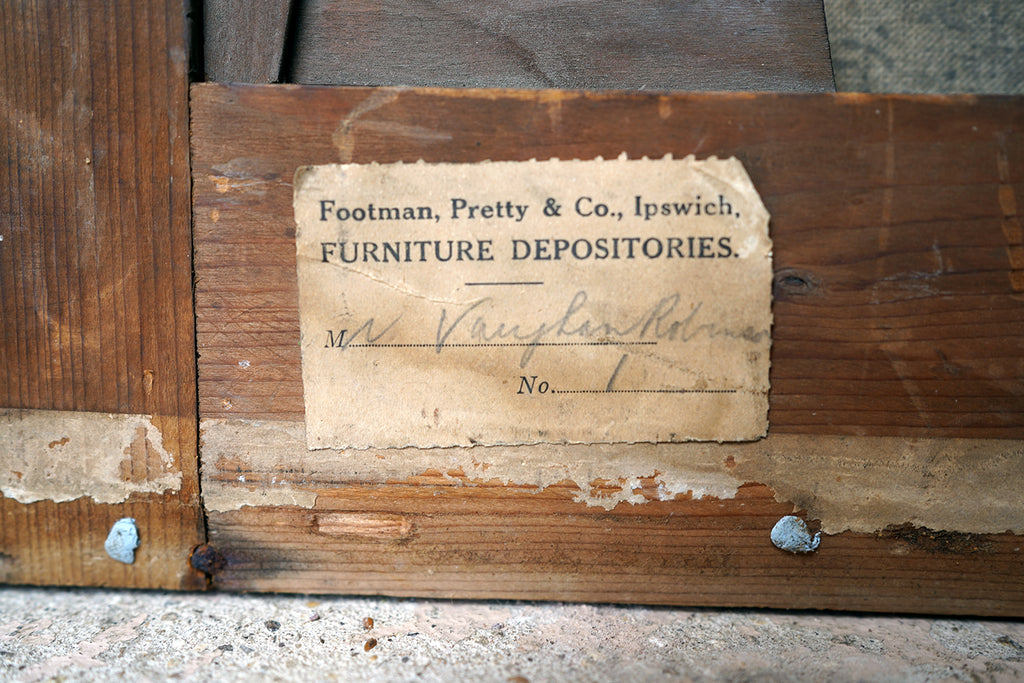 Footman, Pretty & Co., Ipswich,
FURNITURE DEPOSITORIES.
Mr Vaughan Robinson
No. 1